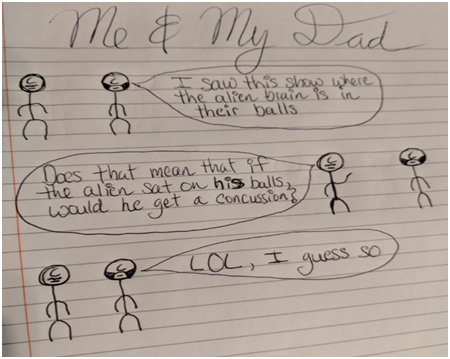 Me & My Dad
I saw this show where
the alien brain is in
their balls
Does that mean that if
the alien sat on his balls,
would he get a concussion?
LOL, I guess so